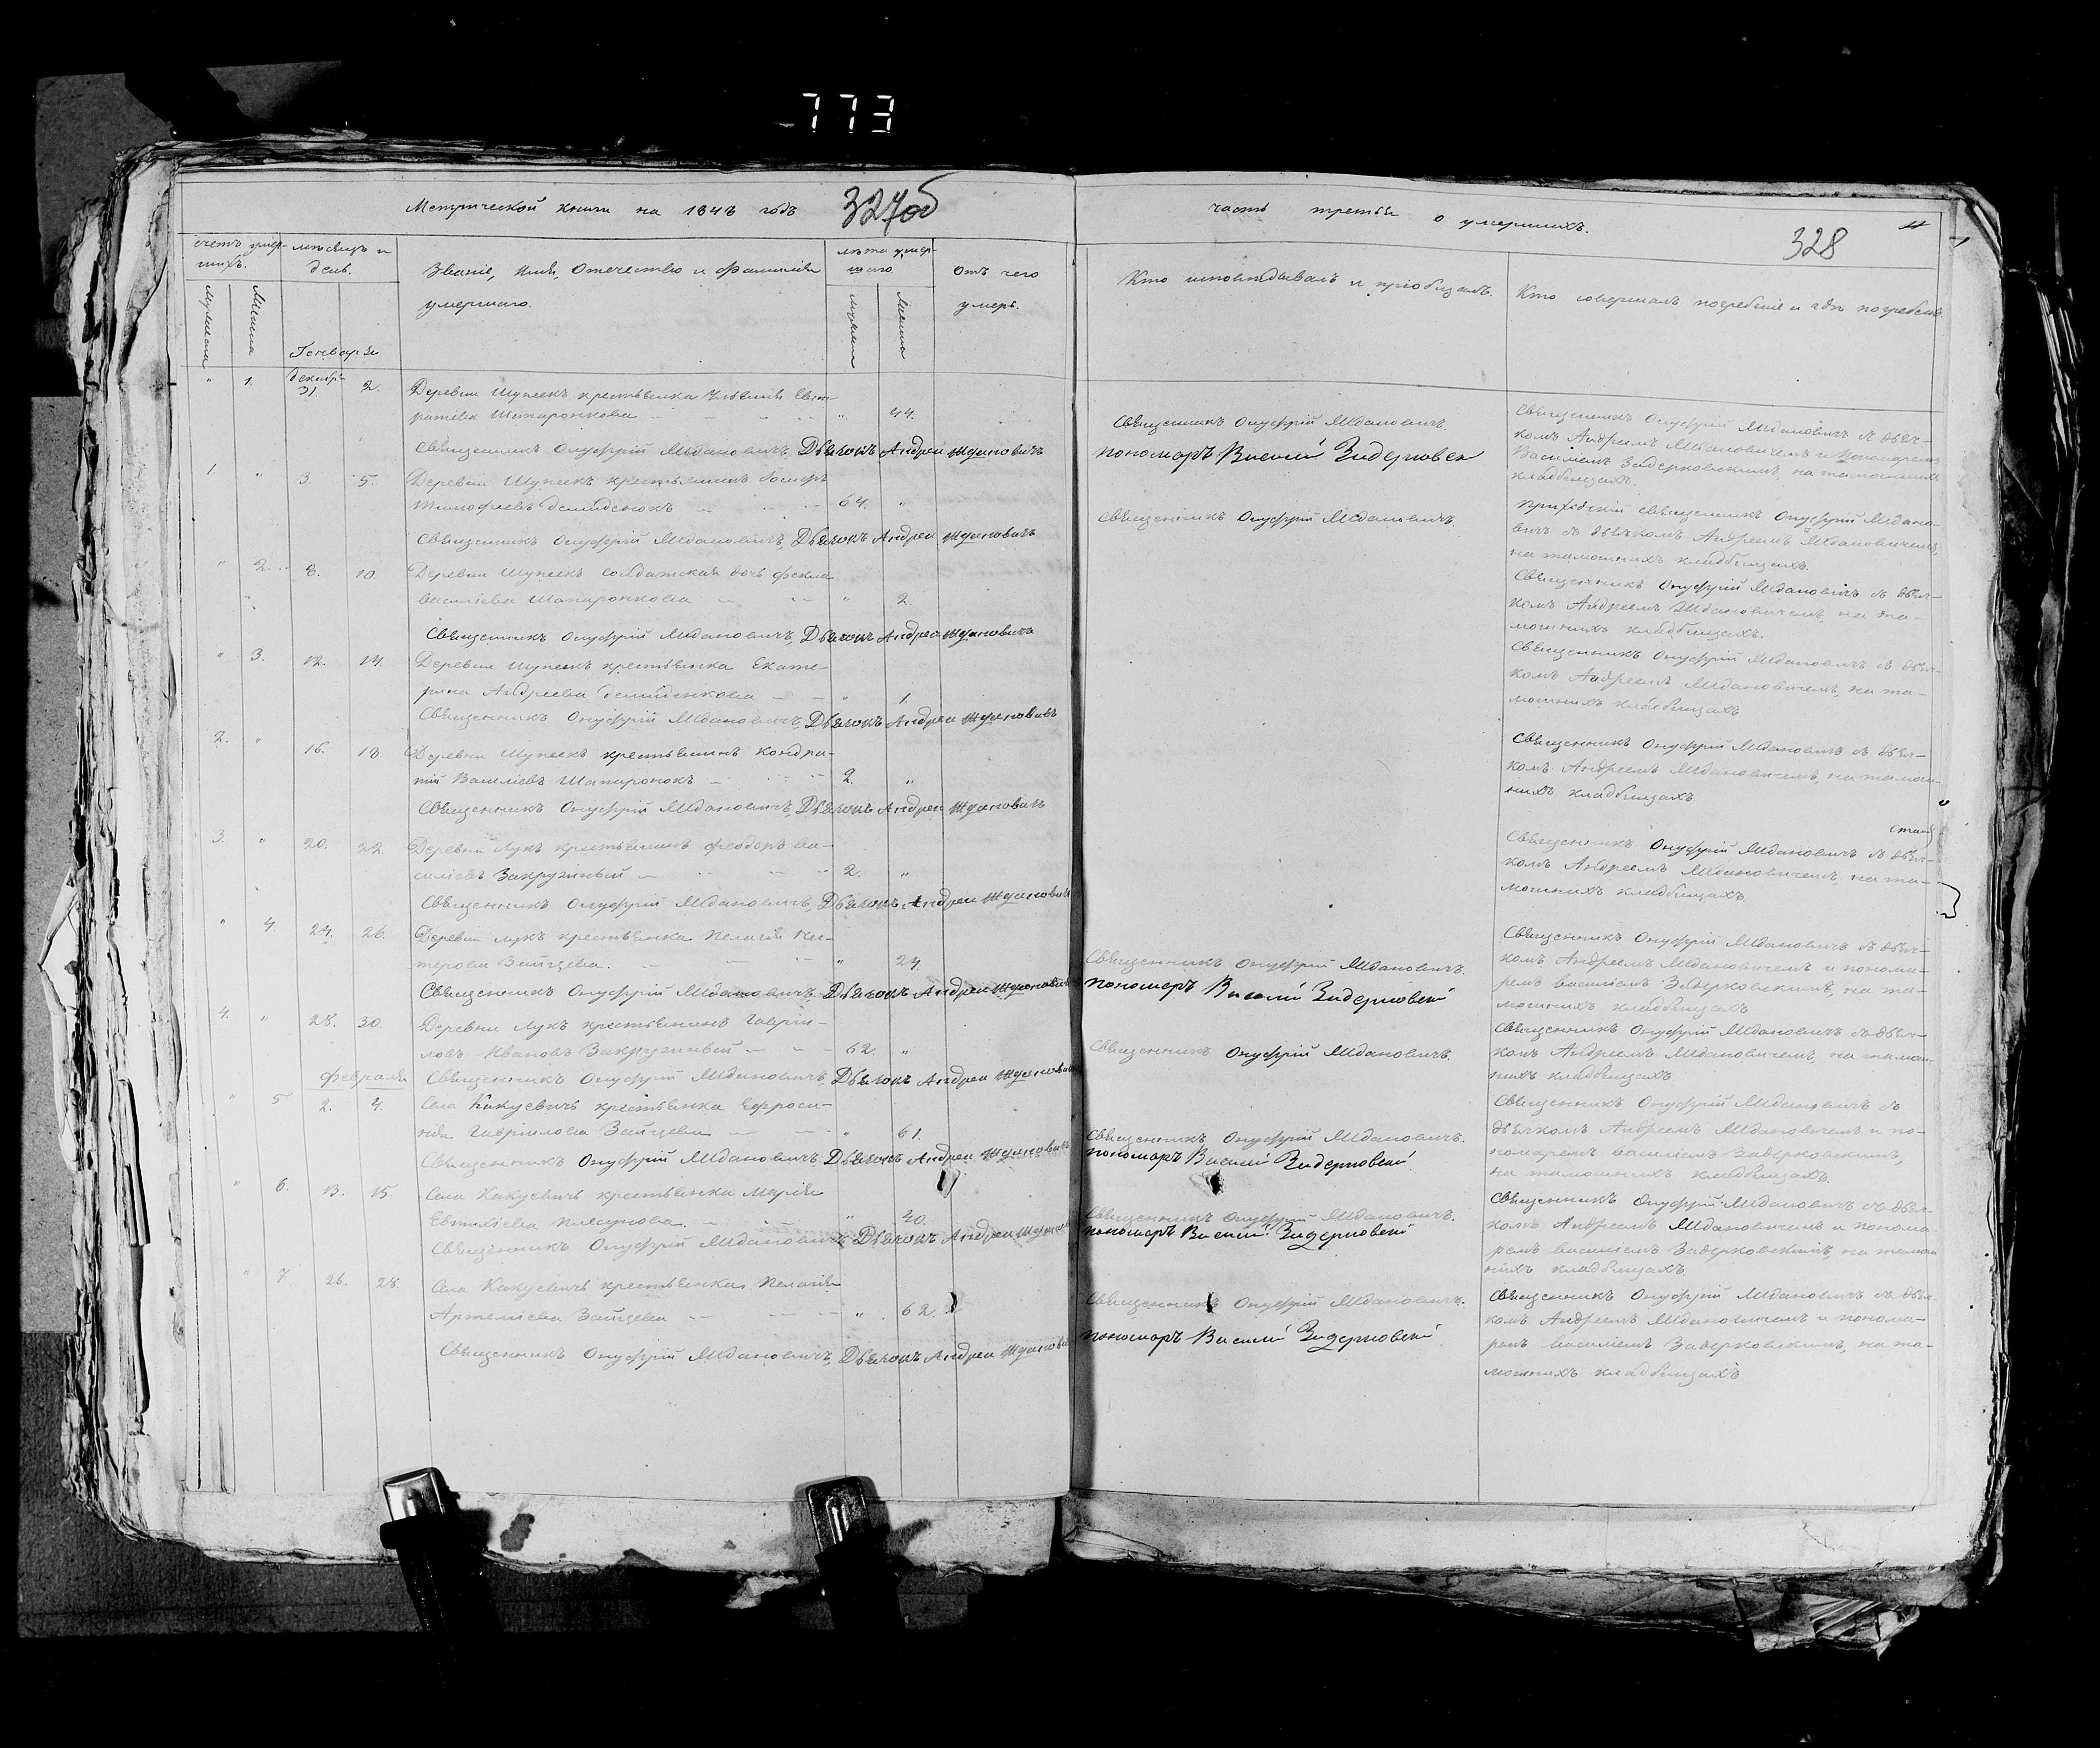 773
Метрической книги на 1848 годъ
327об
часть третья о умершихъ.
328
счетъ умер-
шихъ.
мѣсяцъ и
день.
Званіе, имя, отечество и фамилія
умершаго.
лѣта умер-
шаго
отъ чего
умеръ.
Кто исповѣдывалъ и пріобщалъ.
Кто совершалъ погребеніе и гдѣ погребенъ.
Мужеска
Женска
Генваря
" 1. декабр. 31 2. Деревни крестьянка
44.
Священникъ Онуфрій Ждановичъ, Дьячокъ Андреи Ждановичъ
Священникъ Онуфрій Ждановичъ.
пономарь Василій
Священникъ Онуфрій Ждановичъ съ дьяч-
комъ Андреемъ Ждановичемъ и пономаремъ
Василіемъ Задерковскимъ, на тамошнихъ
кладбищахъ.
1. " 3. 5. Деревни крестьянинъ
Тимофеевъ Демиденокъ 64. "
Священникъ Онуфрій Ждановичъ, Дьячокъ Андреи Ждановичъ
Священникъ Онуфрій Ждановичъ
Приходскій священникъ Онуфрій Ждано-
вичъ съ дьячкомъ Андреемъ Ждановичемъ,
на тамошнихъ кладбищахъ.
" 2. 8. 10. Деревни солдатская дочь Фекла
Василіева Шапаронкова " 2.
Священникъ Онуфрій Ждановичъ, Дьячокъ Андреи Ждановичъ
Священникъ Онуфрій Ждановичъ съ дьяч-
комъ Андреемъ Ждановичемъ, на та-
мошнихъ кладбищахъ.
" 3. 12. 14. Деревни крестьянка Екате-
рина Андреева Демиденкова " 1.
Священникъ Онуфрій Ждановичъ, Дьячокъ Андреи Ждановичъ
Священникъ Онуфрій Ждановичъ съ дьяч-
комъ Андреемъ Ждановичемъ, на та-
мошнихъ кладбищахъ
2. " 16. 18 Деревни крестьянинъ Кондра-
тій Василіевъ Шапаронокъ 2. "
Священникъ Онуфрій Ждановичъ, Дьячокъ Андреи Ждановичъ
Священникъ Онуфрій Ждановичъ съ дьяч-
комъ Андреемъ Ждановичемъ, на тамош-
нихъ кладбищахъ.
3. " 20. 22. Деревни Лукъ крестьянинъ Феодоръ Ва-
силіевъ Закружный 2. "
Священникъ Онуфрій Ждановичъ, Дьячокъ Андреи Ждановичъ
Священникъ Онуфрій Ждановичъ съ дьяч-
комъ Андреемъ Ждановичемъ, на та-
мошнихъ кладбищахъ.
" 4 24. 26. Деревни Лукъ крестьянка Пелагія
Зайцева. " 24
Священникъ Онуфрій Ждановичъ, Дьячокъ Андреи Ждановичъ
Священникъ Онуфрій Ждановичъ.
пономарь Василій
Священникъ Онуфрій Ждановичъ съ дьяч-
комъ Андреемъ Ждановичемъ и понома-
ремъ Василіемъ Задерковскимъ, на та-
мошнихъ кладбищахъ
4. " 28. 30. Деревни Лукъ крестьянинъ Гаврі-
илъ Ивановъ Закружный 62. "
Священникъ Онуфрій Ждановичъ, Дьячокъ Андреи Ждановичъ
Священникъ Онуфрій Ждановичъ.
Священникъ Онуфрій Ждановичъ съ дьяч-
комъ Андреемъ Ждановичемъ, на тамош-
нихъ кладбищахъ
февраля
" 5 2. 4. Села Какуевичъ крестьянка Ефроси-
нія Гавріилова Зайцева " 61.
Священникъ Онуфрій Ждановичъ, Дьячокъ Андреи Ждановичъ
Священникъ Онуфрій Ждановичъ.
пономарь Василій
Священникъ Онуфрій Ждановичъ съ
дьячкомъ Андреемъ Ждановичемъ и по-
номаремъ Василіемъ Задерковскимъ,
на тамошнихъ кладбищахъ.
" 6. 13. 15. Села Какуевичъ крестьянка Марія
" 40.
Священникъ Онуфрій Ждановичъ, Дьячокъ Андреи
Священникъ Онуфрій Ждановичъ.
пономарь Василій
Священникъ Онуфрій Ждановичъ съ дьяч-
комъ Андреемъ Ждановичемъ и понома-
ремъ Василіемъ Задерковскимъ, на тамош
нихъ кладбищахъ.
" 7 26. 28. Села Какуевичъ крестьянка Пелагія
Зайцева " 62.
Священникъ Онуфрій Ждановичъ, Дьячокъ Андреи
Священникъ Онуфрій Ждановичъ.
пономарь Василій
Священникъ Онуфрій Ждановичъ съ дьяч-
комъ Андреемъ Ждановичемъ и понома-
ремъ Василіемъ Задерковскимъ, на та-
мошнихъ кладбищахъ